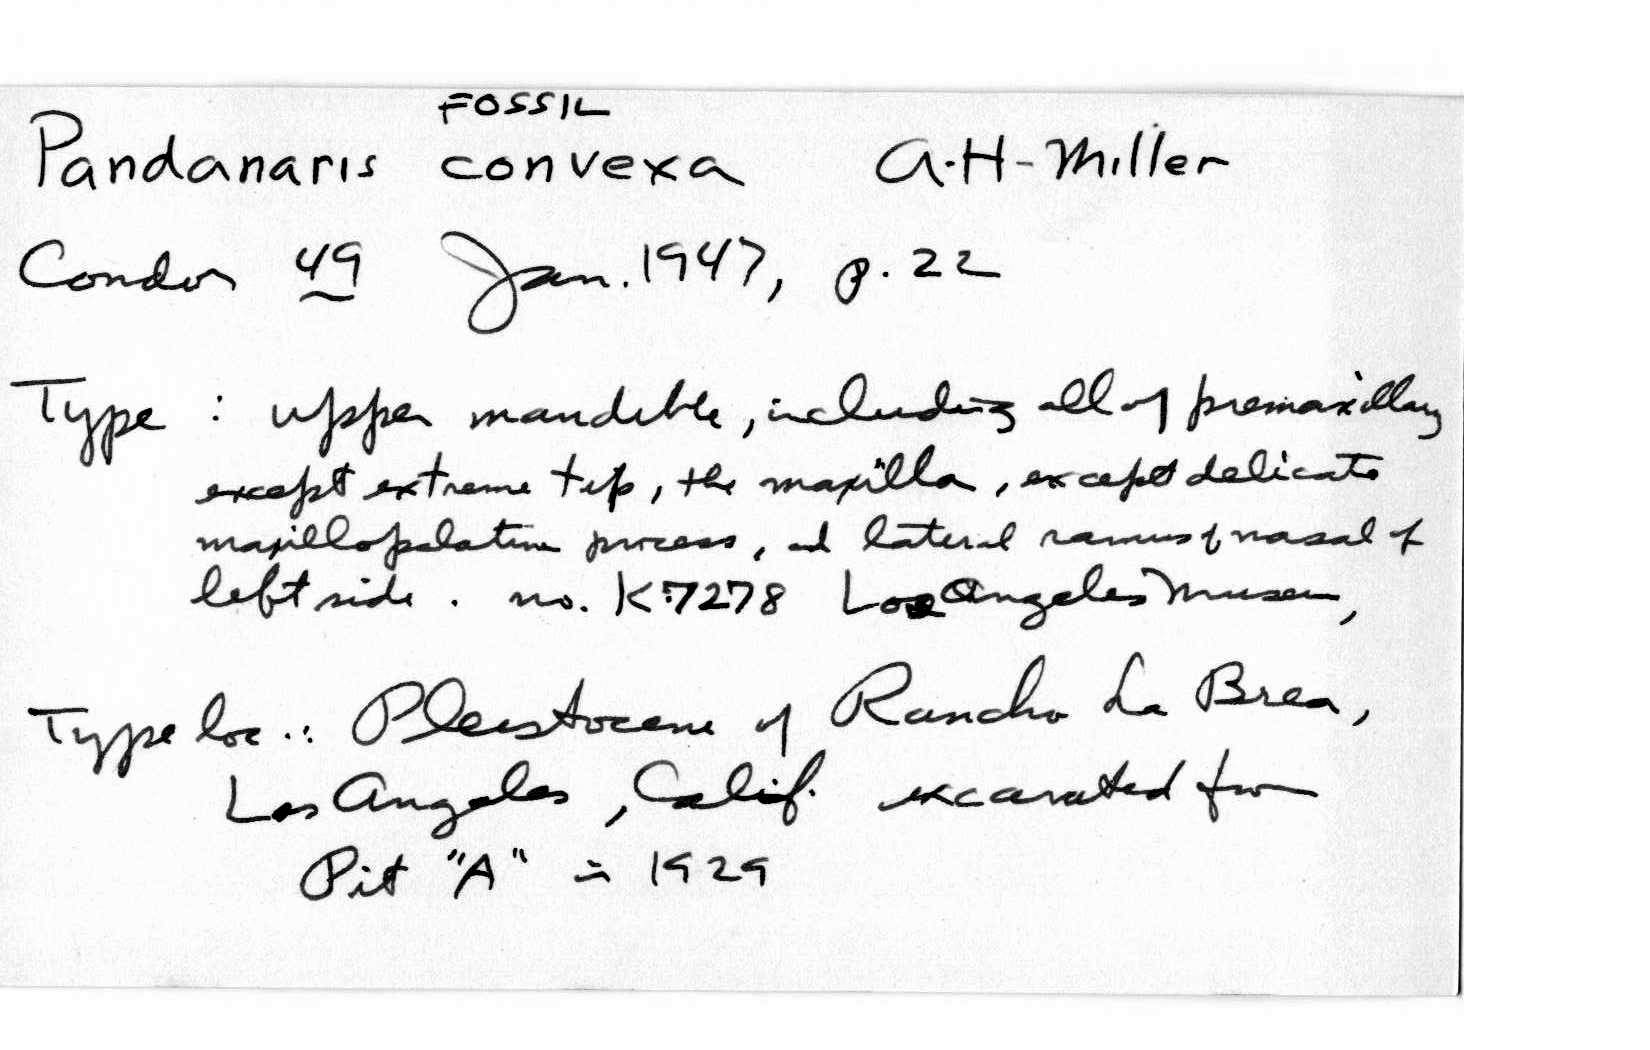 FOSSIL
Pandanaris convexa A.H-Miller
Condor 49 Jan. 1947, p. 22
Type : upper mandible, including all of premaxillary
except extreme tip, the maxilla, except delicate
maxillopalatine process, and lateral ramus of nasal of
left side. no. K7278 Los Angeles Museum,
Type loc.: Pleistocene of Rancho La Brea,
Los Angeles, Calif. excavated from
Pit "A" in 1929